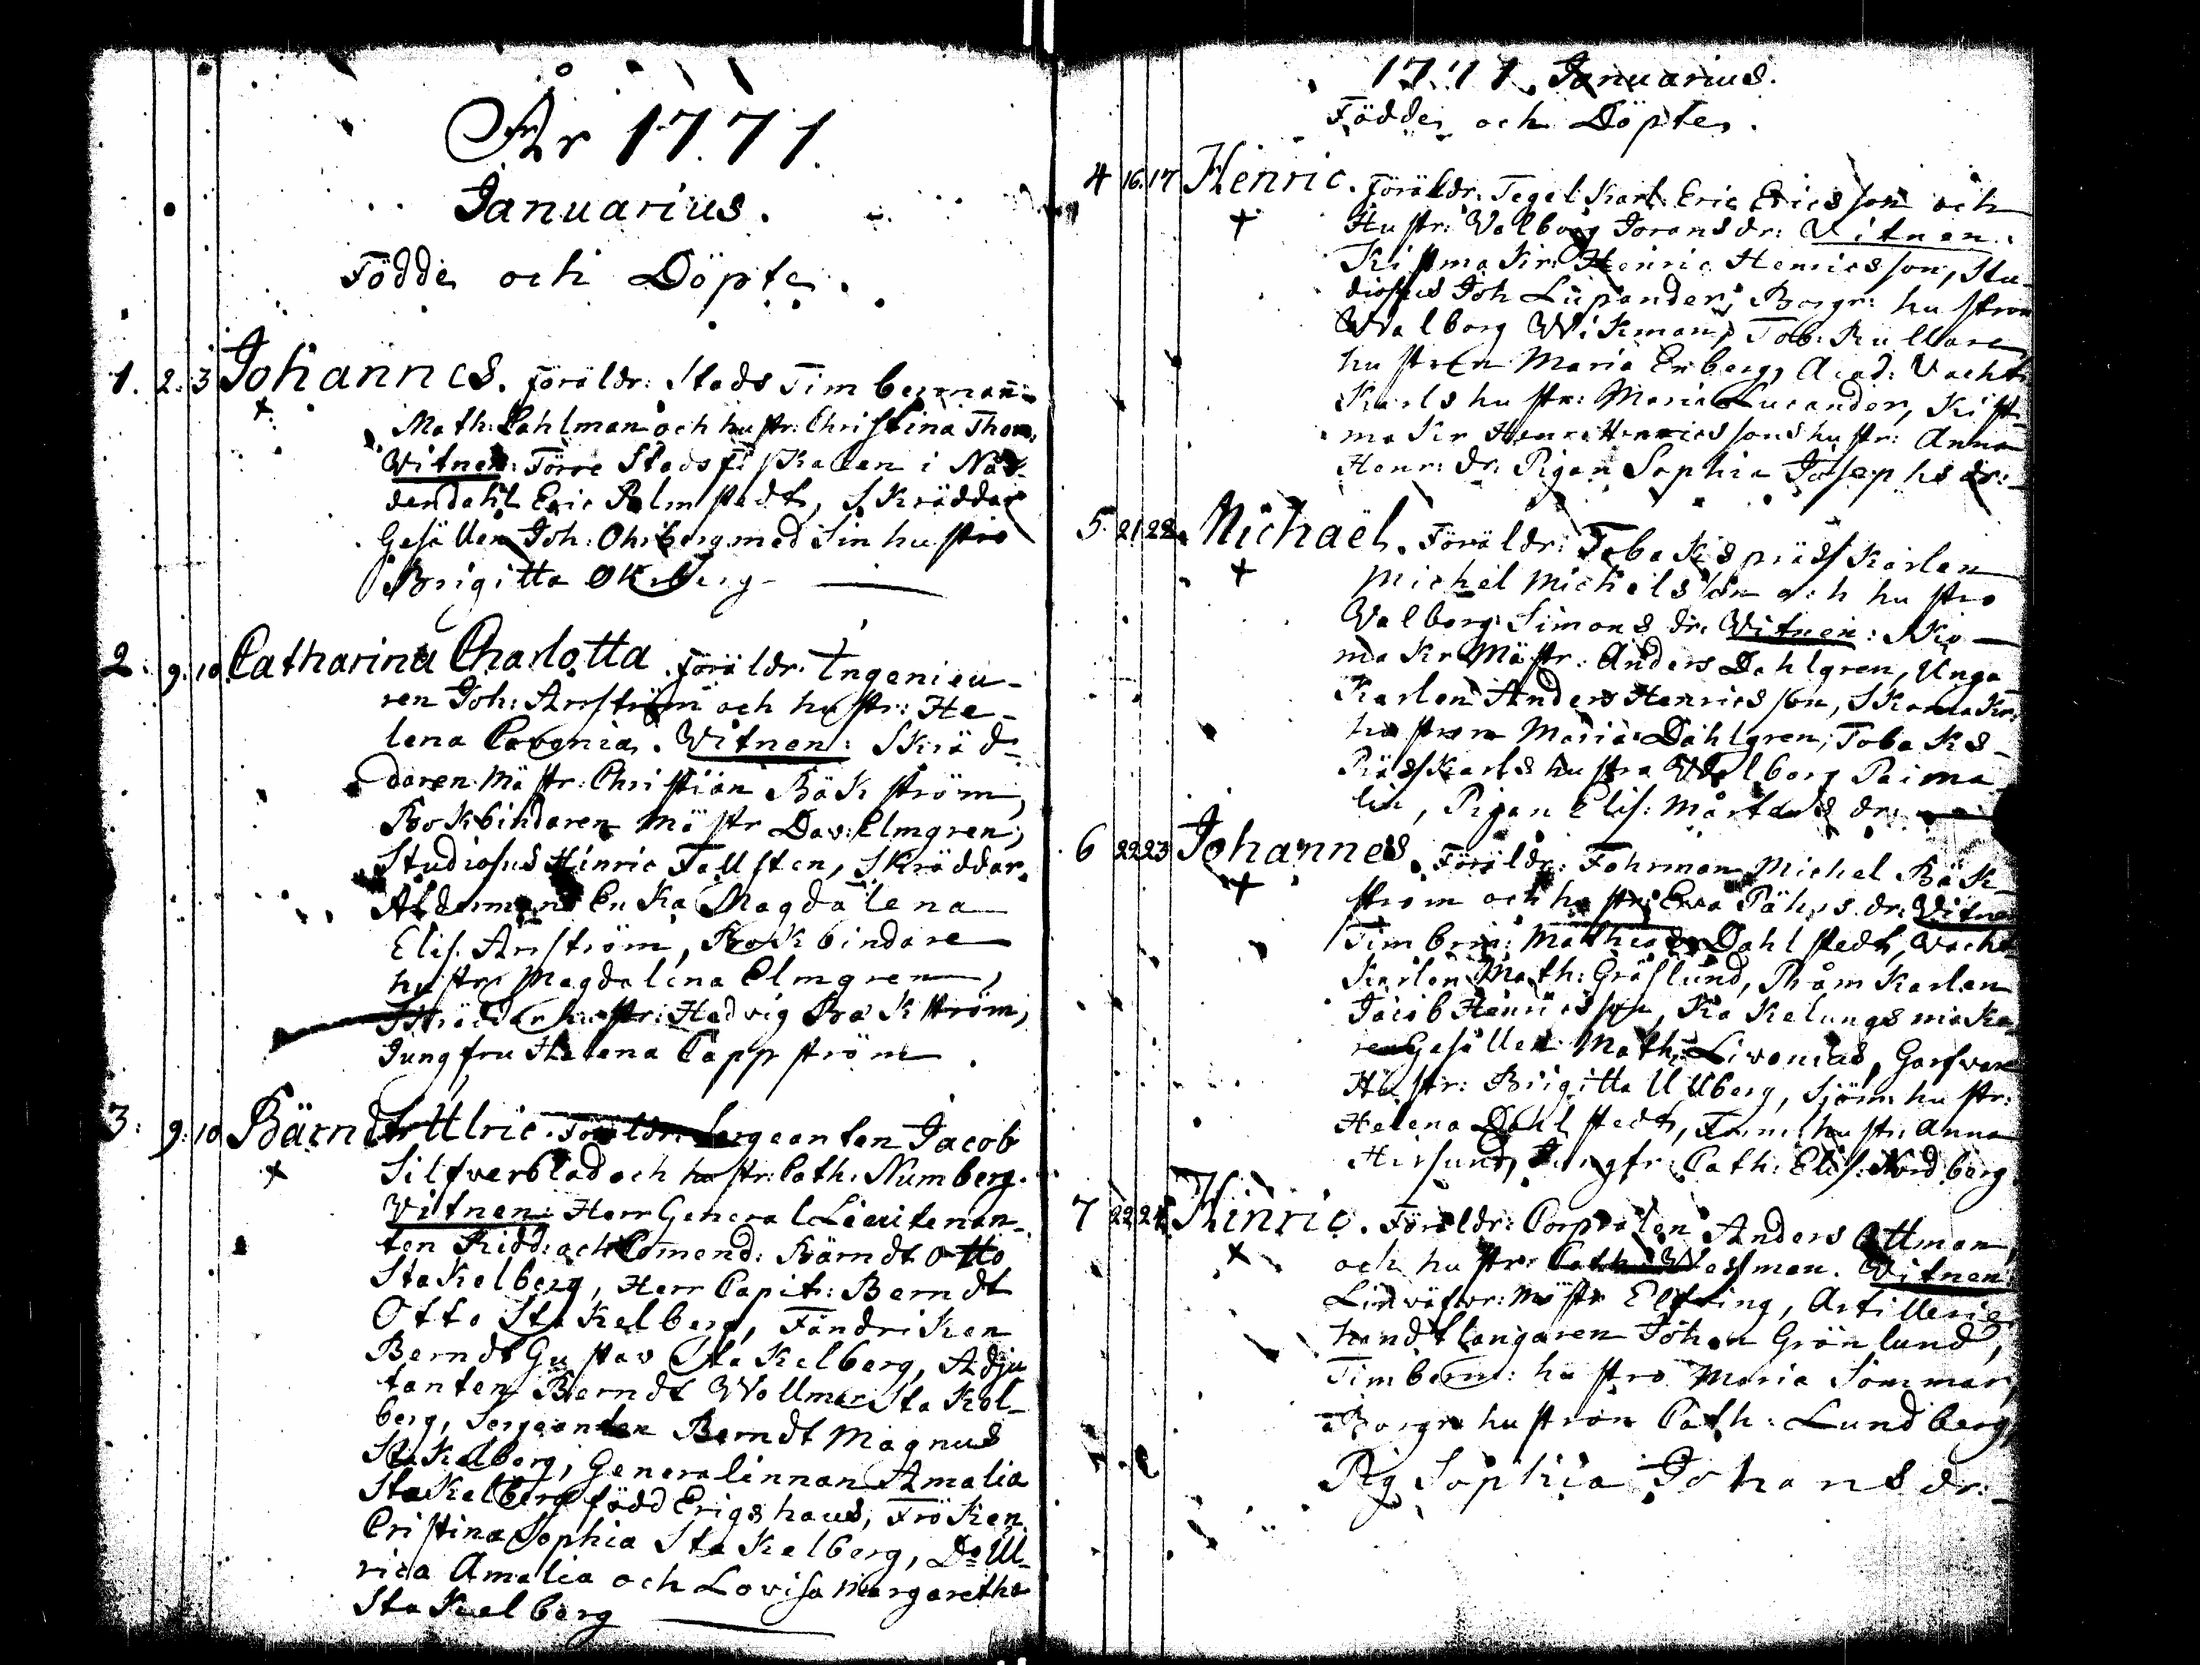 År 1771.
Januarius.
Födde och Döpte.
1. 2. 3 Johannes. Föräldr: Stads Timberman
Math: Dahlman och hustr: Christina Thom.
Witnen: Förre Stadsfiskalen i Nå-
dendahl Eric Palmstedt, Skräddar
Gesällen Joh: Ohrberg med Sin hustro
Brigitta Okrberg
2. 9. 10 Catharina Charlotta. Föräldr. Ingenieu-
ren Joh: Arnström och hustr: He-
lena Cavonia. Witnen: Skräd-
daren Mästr: Christian Bäkström,
Bokbindaren Mästr Dav: Elmgren,
Studiosus Hinric Fallsten, Skräddar.
Aldermans Enka Magdalena
Elis. Arnström, Bokbindare
hustr Magdalena Elmgren,
Skräddar hustr: Hedvig Bäkström,
Jungfru Helena Pappström.
3. 9. 10 Bärndt Ulric. Föräldr: Sergeanten Jacob
Silfverblad och hustr: Cath: Numberg.
Witnen: Herr General Lieutenan-
ten Ridd: och Comend: Bärndt Otto
Stakelberg, Herr Capit: Berndt
Otto Stakelberg, Fändriken
Berndt Gustav Stakelberg, Adju
tanten Berndt Wollmar Stakel-
berg, Sergeanten Berndt Magnus
Stakelberg, Generalinnan Amalia
Stakelberg född Erigshaus, Fröken
Cristina Sophia Stakelberg, Do Ul-
rica Amalia och Lovisa Margaretha
Stakelberg
1771. Januarius.
Födde och Döpte.
4 16. 17 Henric. Föräldr: Tegel Karl. Eric Ericsson och
Hustr: Valborg Joransdr: Vitnen:
Kistmakr: Henric Henricsson, Stu-
diosus Joh Lupander, Borgr: hustron
Walborg Wikman, Tob: Rullare
hustrun Maria Enberg, Acad: Vacht
Karls hustr: Maria Lucander, Kist-
makr Henr: Henricssons hustr: Anna
Henr: dr: Pigan Sophia Josephsdr:
5. 21. 22. Michaël. Föräldr: Tobakspräss Karlen
Michel Michelsson och hustro
Valborg Simonsdr. Witnen: Sko-
makr Mästr: Anders Dahlgren, Unga
Karlen Anders Henricsson, Skomakr:
hustron Maria Dahlgren, Tobaks-
Präss Karls hustro Valborg Paima
lin, Pigan Elis: Mårtensdr:
6 22 23 Johannes. Föräldr: Fohrman Michel Bäk-
ström och hustr: Eva Påhlsdr: Vitnen
Timberm: Matthias Dahlstedt, Vacht
Karlen Math: Gräslund, Pråm Karlen
Jacob Henricsson, Kakelungsmaka-
ren Gesällen Math: Livonius, Garfvare
Hustr: Brigitta Ullberg, Sjöm: hustr:
Helena Dahlstedt, hustr: Anna
Hirsund, Jungfr: Cath: Elis: Nordberg
7 22 24 Hinric. Föräldr: Corpralen Anders Ottman,
och hustr: Cath: Wassman. Vitnen:
Linväfvr: Mästr Elfving, Artillerie
handtlangaren Johan Grönlund,
Timberm: hustro Maria Sommar,
Borgr: hustron Cath: Lundberg,
Pig Sophia Johansdr: